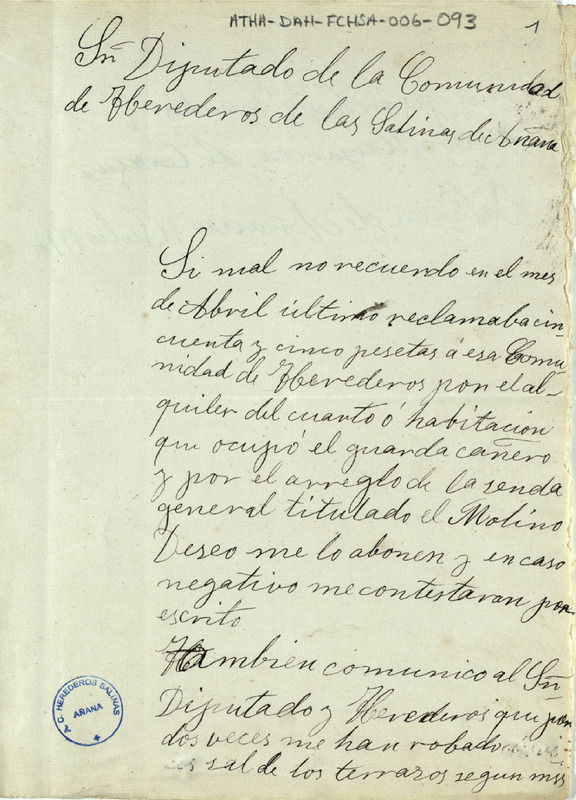 ATHA-DAH-FCHSA-006-093
1
Sñ Diputado de la Comunidad
de Herederos de las Salinas de Añana
Si mal no recuerdo en el mes
de Abril último reclamaba cin
cuenta y cinco pesetas a esa Comu
nidad de Herederos por el al-
quiler del cuarto ó habitacion
que ocupió el guarda cañero
y por el arreglo de la senda
general titulado el Molino
Deseo me lo abonen y en caso
negativo me contestaran por
escrito
Tambien comunico al Sñ
Diputado y Herederos que por
dos veces me han robado
sal de los terrazos segun mis
A C. HEREDEROS SALINAS
AÑANA